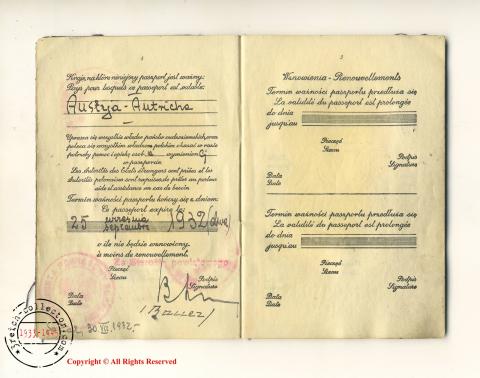 4
Kraje, na które niniejszy paszport jest ważny:
Pays pour lesquels ce passeport est valable:
Austrja-Autriche
Uprasza się wszystkie władze państw cudzoziemskich, oraz
poleca się wszystkim władzom polskim okazać w razie
potrzeby pomoc i opiekę osob
wymienion
w paszporcie.
Les Autorités des Etats Etrangers sont priées et les
Autorités polonaises sont requises de prêter au porteur
aide et assistance en cas de besoin.
Termin ważności paszportu kończy się z dniem:
Ce passeport expire le:
25 września
septembre 1932
o ile nie będzie wznowiony.
à moins de renouvellement.
Pieczęć
Sceau
Podpis
Signature
Data
Date
30 VII. 1932.
5
Wznowienia - Renouvellements
Termin ważności paszportu przedłuża się
La validité du passeport est prolongée
do dnia
jusqu'au
Pieczęć
Sceau
Podpis
Signature
Data
Date
Termin ważności paszportu przedłuża się
La validité du passeport est prolongée
do dnia
jusqu'au
Pieczęć
Sceau
Podpis
Signature
Data
Date
3reich-collector.com
1933-1945
Copyright © All Rights Reserved